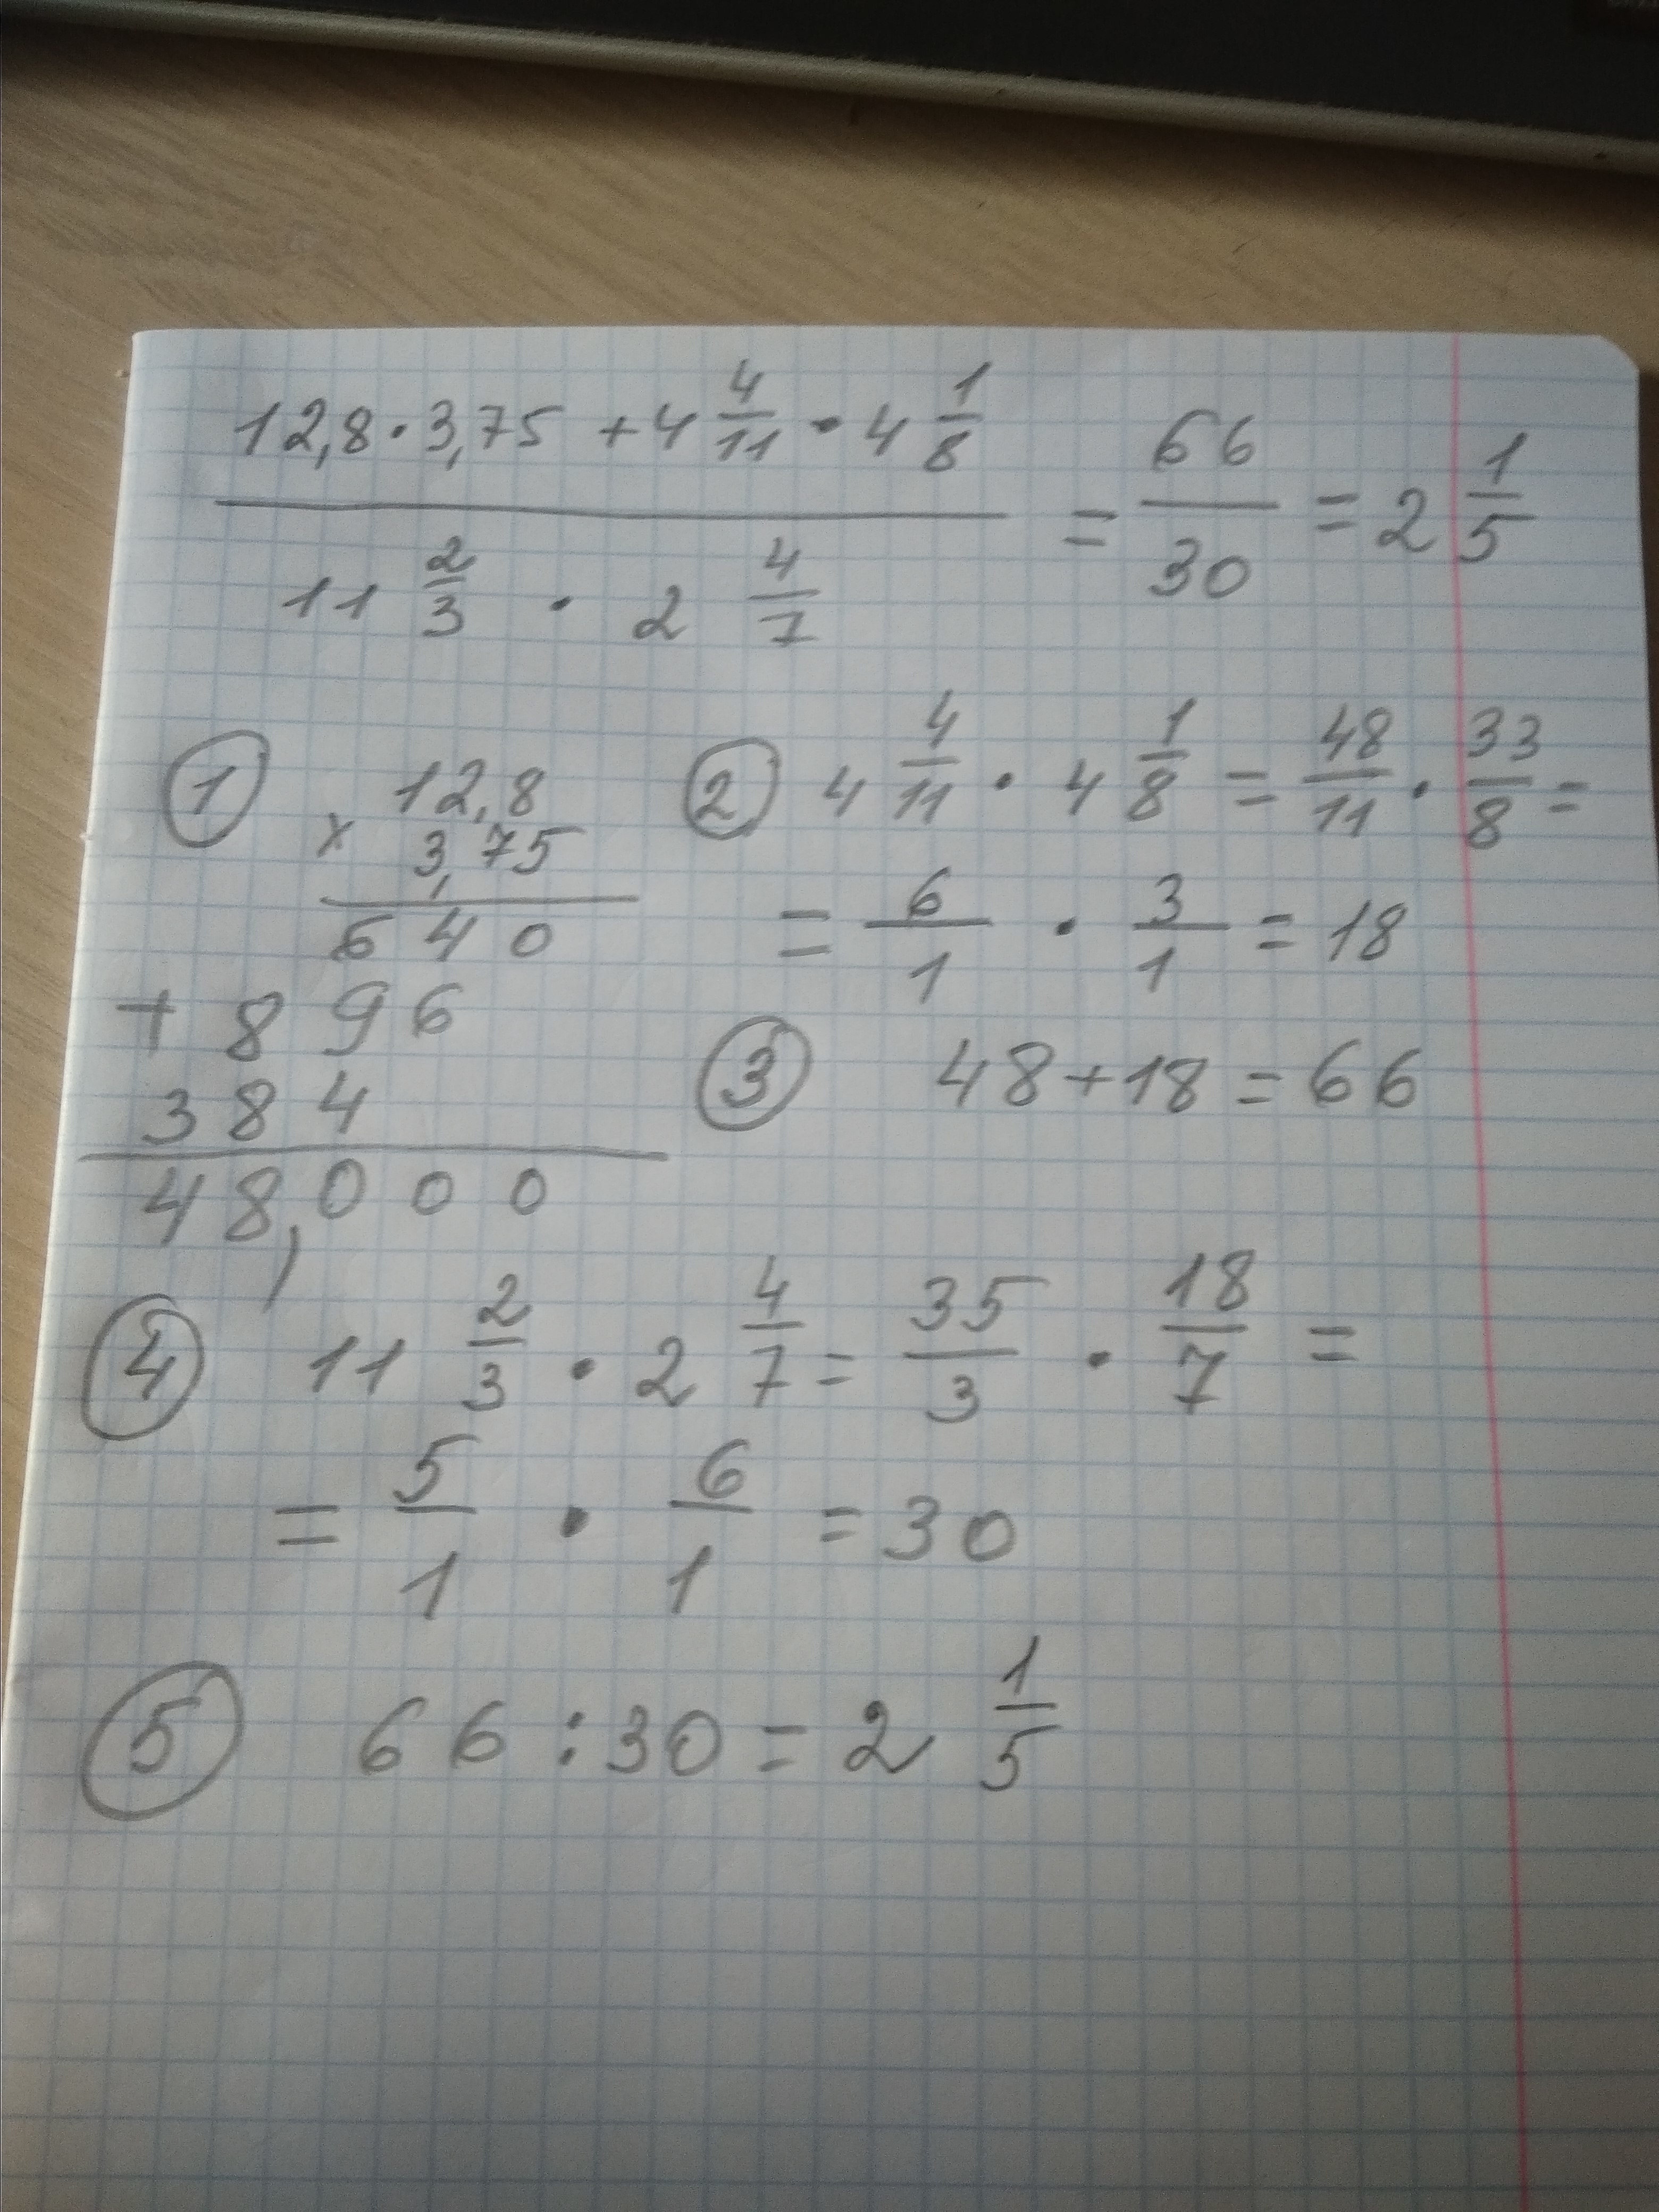 (12,8 · 3,75 + 4 4/11 · 4 1/8) / (11 2/3 · 2 4/7) = 66/30 = 2 1/5
① 12,8
× 3,75
640
+ 896
384
48,000
② 4 4/11 · 4 1/8 = 48/11 · 33/8 =
= 6/1 · 3/1 = 18
③ 48 + 18 = 66
④ 11 2/3 · 2 4/7 = 35/3 · 18/7 =
= 5/1 · 6/1 = 30
⑤ 66 : 30 = 2 1/5